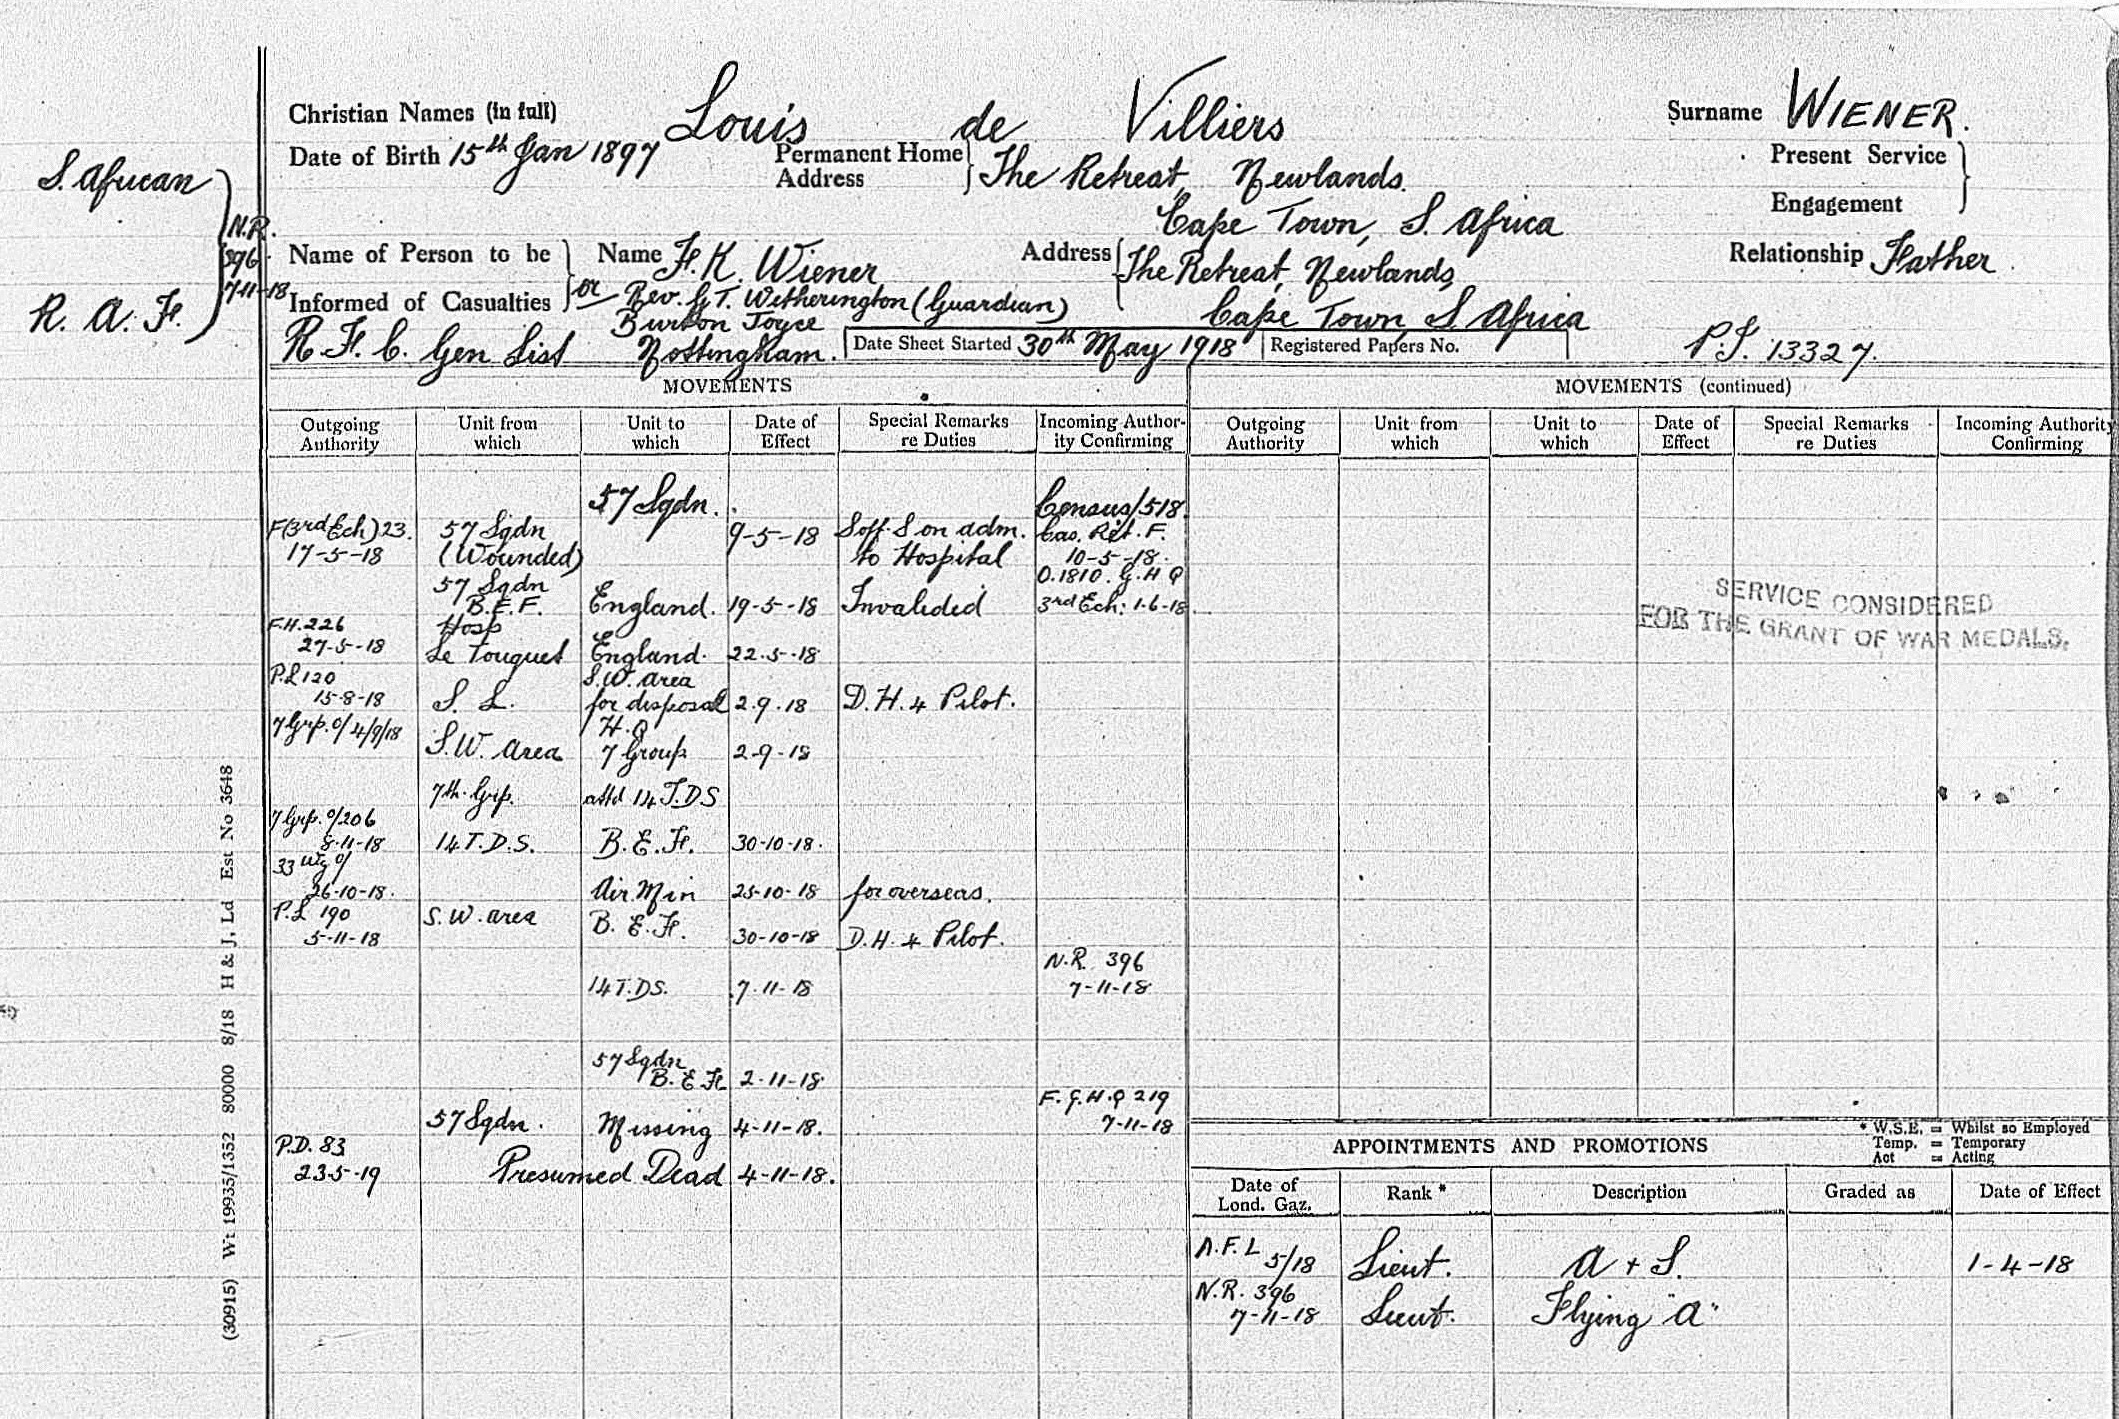 Christian Names (in full) Louis de Villiers Surname WIENER.
Date of Birth 15th Jan 1897 Permanent Home Address } The Retreat, Newlands. Present Service
Cape Town, S. Africa Engagement
S. African
R. A. F.
N.R.
396
7-11-18
Name of Person to be Informed of Casualties } Name F. K. Wiener Address { The Retreat, Newlands, Relationship Father.
or Rev. G. T. Witherington (Guardian) Cape Town, S Africa
Burton Joyce
R. F. C. Gen List Nottingham. Date Sheet Started 30th May 1918 Registered Papers No. P.I. 13327.
MOVEMENTS
Outgoing Authority Unit from which Unit to which Date of Effect Special Remarks re Duties Incoming Authority Confirming
57 Sqdn. Census/518.
F(3rd Ech) 23. 57 Sqdn 9-5-18 S off. S on adm. Cas. Ret. F.
17-5-18 (Wounded) to Hospital 10-5-18.
57 Sqdn O.1810. G.H.Q
B.E.F. England. 19-5-18 Invalided 3rd Ech: 1-6-18.
F.H. 226 Hosp
27-5-18 Le Touquet England. 22.5-18
P.L 120 S.W. area
15-8-18 S. L. for disposal 2.9.18 D.H. 4 Pilot.
7 Grp. o/4/9/18 H.Q
S.W. area 7 Group 2-9-18
7th Grp. attd 14 T.D.S
7 Grp. o/206
8-11-18 14 T.D.S. B.E.F. 30-10-18.
33 Wg o/
26-10-18. Air Min 25-10-18 for overseas.
P.L 190 S.W. area B.E.F.
5-11-18 30-10-18 D.H. 4 Pilot.
N.R. 396
14 T.D.S. 7-11-18 7-11-18
57 Sqdn
B.E.F. 2-11-18
F. G.H.Q 219
57 Sqdn. Missing 4-11-18. 7-11-18
P.D. 83
23-5-19 Presumed Dead 4-11-18.
MOVEMENTS (continued)
Outgoing Authority Unit from which Unit to which Date of Effect Special Remarks re Duties Incoming Authority Confirming
SERVICE CONSIDERED
FOR THE GRANT OF WAR MEDALS.
* W.S.E. = Whilst so Employed
Temp. = Temporary
Act = Acting
APPOINTMENTS AND PROMOTIONS
Date of Lond. Gaz. Rank * Description Graded as Date of Effect
A.F.L 5/18 Lieut. A + S. 1-4-18
N.R. 396
7-11-18 Lieut. Flying "A"
(30915) Wt 19935/1352 80000 8/18 H & J, Ld Est No 3648